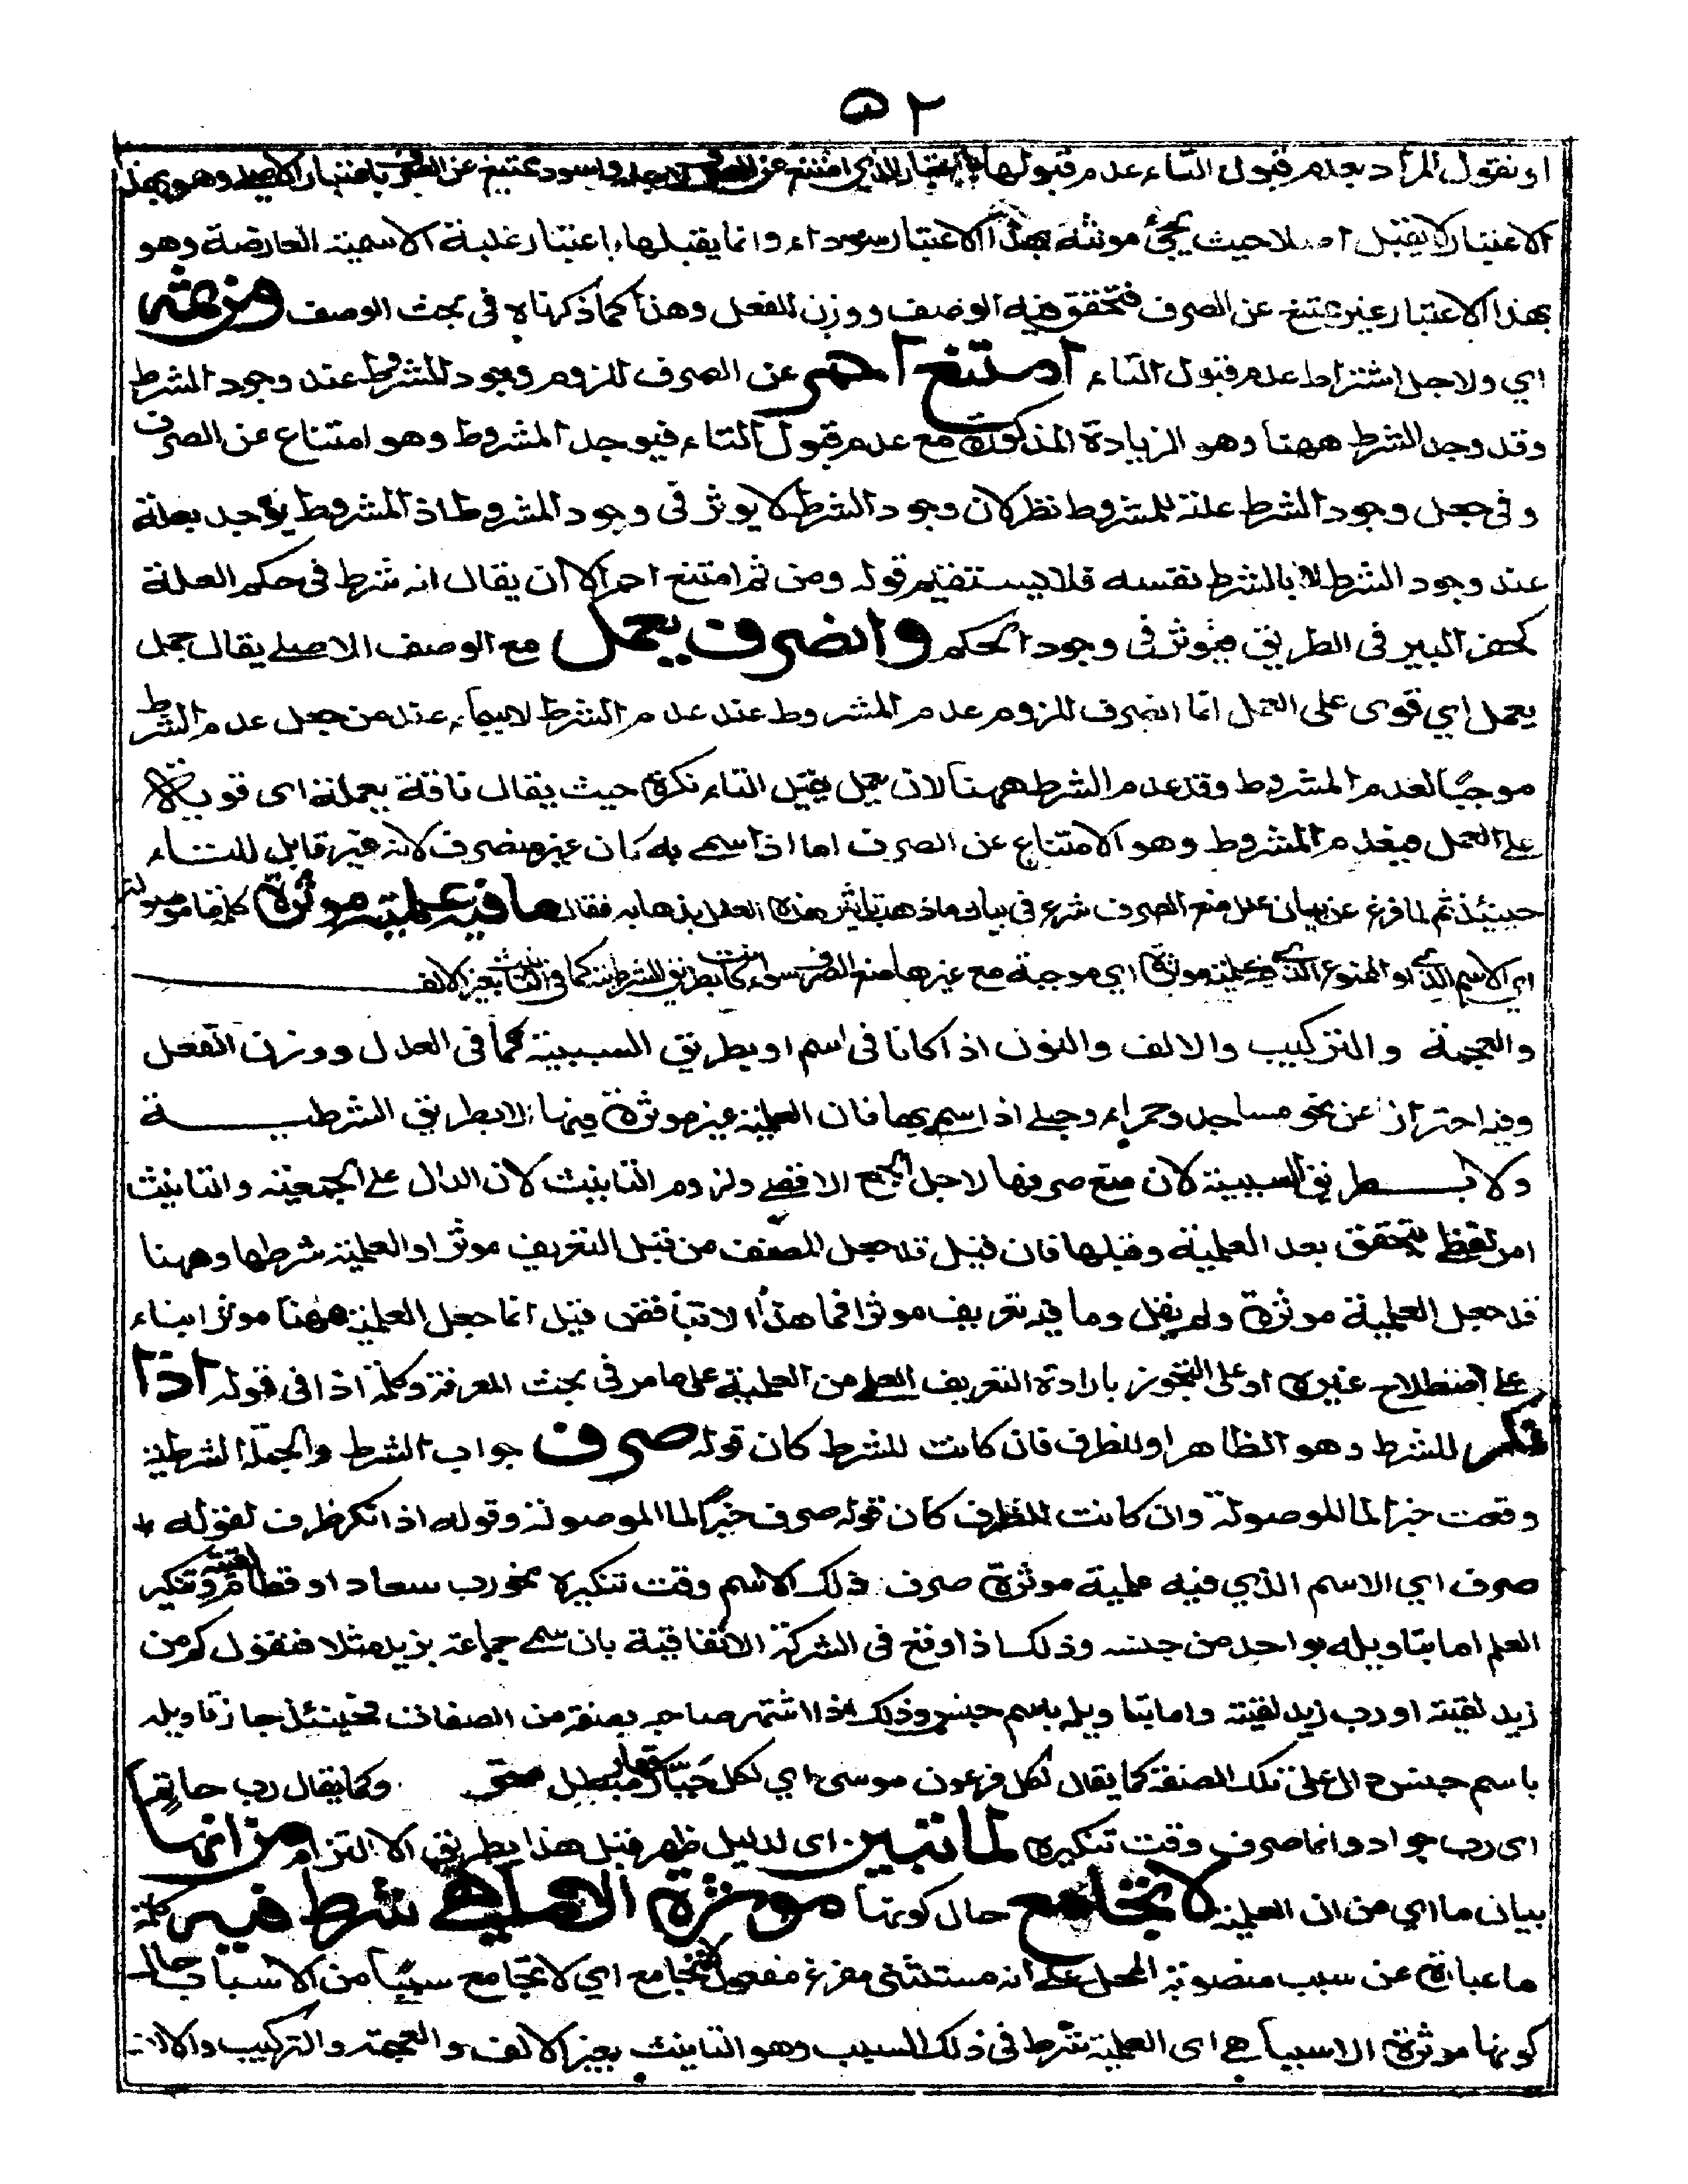 ٥٢
او نقول المراد بعدم قبول التاء عدم قبولها باعتبار الذي امتنع عن الصرف لاجله واسود يمتنع عن الصرف باعتبار الاصل وهو بهذا
الاعتبار لا يقبل اصلا حيث يجئ مونثه بهذا الاعتبار سوداء وانما يقبلها باعتبار غلبة الاسمية العارضة وهو
بهذا الاعتبار غير ممتنع عن الصرف فتحقق فيه الوصف ووزن الفعل وهذا كما ذكرناه في بحث الوصف ومن ثم
اي ولاجل اشتراط عدم قبول التاء امتنع احمر عن الصرف للزوم وجود المشروط عند وجود الشرط
وقد وجد الشرط ههنا وهو الزيادة المذكورة مع عدم قبول التاء فيوجد المشروط وهو امتناع عن الصرف
وفي جعل وجود الشرط علة للمشروط نظر لان وجود الشرط لا يوثر في وجود المشروط اذ المشروط يوجد بعلة
عند وجود الشرط لا بالشرط نفسه فلا يستقيم قوله ومن ثم امتنع احمر الا ان يقال انه شرط في حكم العلة
كحفر البير في الطريق فيوثر في وجود الحكم وانصرف يعمل مع الوصف الاصلي يقال جمل
يعمل اي قوى على العمل انما انصرف للزوم عدم المشروط عند عدم الشرط لاسيما عند من جعل عدم الشرط
موجبا لعدم المشروط وقد عدم الشرط ههنا لان يعمل يقبل التاء نكرة حيث يقال ناقة يعملة اى قوية
على العمل فيعدم المشروط وهو الامتناع عن الصرف اما اذا سمى به كان غير منصرف لانه غير قابل للتاء
حينئذ ثم لما فرغ عن بيان علل منع الصرف شرع في بيان ما ذهب تاثير هذه العلل بذهابه فقال ما فيه علمية موثرة كلمة ما موصولة
اي الاسم الذي او الممنوع الذي فيه علمية موثرة اي موجبة مع غيرها منع الصرف سواء كانت بطريق الشرطية كما في التانيث بغير الالف
والعجمة والتركيب والالف والنون اذا كانا في اسم او بطريق السببية كما في العدل ووزن الفعل
وفيه احتراز عن نحو مساجد وحمراء وحبلى اذا سمي بها فان العلمية غير موثرة فيها لا بطريق الشرطية
ولا بطريق السببية لان منع صرفها لاجل الجمع الاقصى ولزوم التانيث لان الدال على الجمعية والتانيث
امر لفظي يتحقق بعد العلمية وقبلها فان قيل قد جعل المصنف من قبل التعريف موثرا والعلمية شرطها وههنا
قد جعل العلمية موثرة ولم يقل وما فيه تعريف موثرا فما هذا الا تناقض قيل انما جعل العلمية ههنا موثرا بناء
على اصطلاح غيره او على التجوز بارادة التعريف العلمي من العلمية على ما مر في بحث المعرفة وكلمة اذا في قوله اذا
نكر للشرط وهو الظاهر او للظرف فان كانت للشرط كان قوله صرف جواب الشرط والجملة الشرطية
وقعت خبرا لما الموصولة وان كانت للظرف كان قوله صرف خبرا لما الموصولة وقوله اذا نكر ظرف لقوله
صرف اي الاسم الذي فيه علمية موثرة صرف ذلك الاسم وقت تنكيره نحو رب سعاد او قطام لقيته وتنكير
العلم اما بتاويله بواحد من جنسه وذلك اذا وقع في الشركة الاتفاقية بان سمي جماعة بزيد مثلا فنقول كم من
زيد لقيته او رب زيد لقيته واما بتاويله باسم جنس وذلك اذا اشتهر صاحبه بصفة من الصفات فحينئذ جاز تاويله
باسم جنس دال على تلك الصفة كما يقال لكل فرعون موسى اي لكل جبار قهار مبطل محق وكما يقال رب حاتم
اى رب جواد وانما صرف وقت تنكيره لما تبين اى لدليل ظهر قبل هذا بطريق الالتزام من انها
بيان ما اي من ان العلمية لا تجامع حال كونها موثرة الا ما هي شرط فيه كلمة
ما عبارة عن سبب منصوبة المحل على انه مستثنى مفرغ مفعول لا تجامع اي لا تجامع سببا من الاسباب حال
كونها موثرة الا سببا هي اى العلمية شرط في ذلك السبب وهو التانيث بغير الالف والعجمة والتركيب والالف